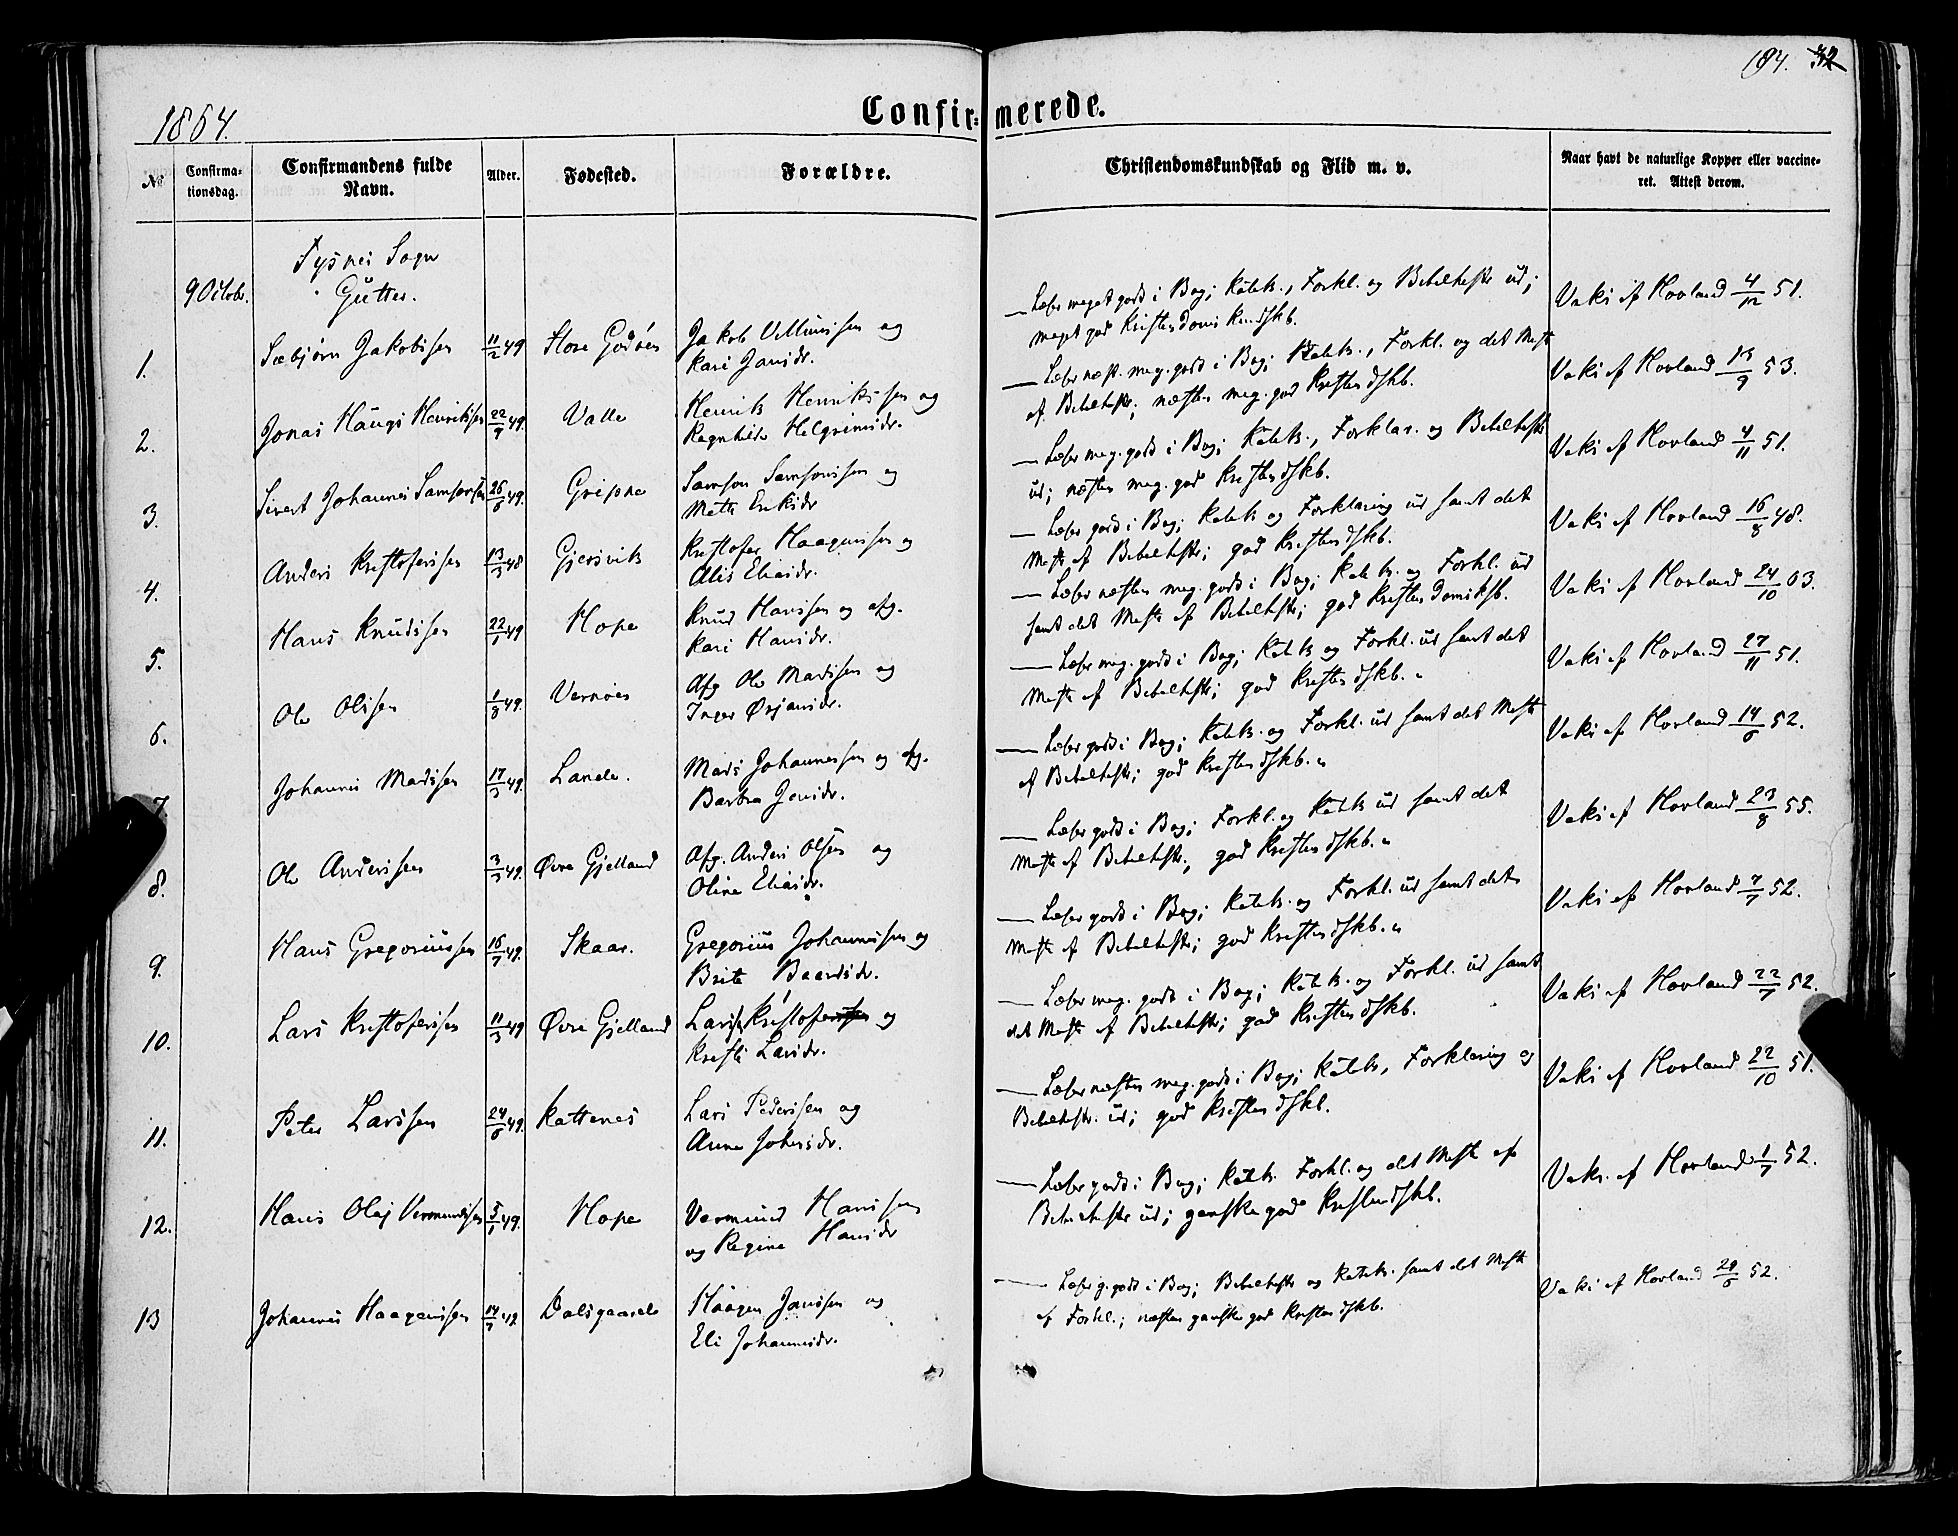 194. 32
1864.
Confirmerede.
No
Confirmationsdag.
Confirmandens fulde Navn.
Alder.
Fødested.
Forældre.
Christendomskundskab og Flid m. v.
Naar havt de naturlige Kopper eller vaccineret. Attest derom.
Tysnes Sogn
9 Octobr. Gutter.
1. Sæbjørn Jakobssen 11/2 49 Store Godøen Jakob Villumssen og
Kari Jansdr.
— Læser meget godt i Bog; Katek., Forkl. og Bibelhistr ud;
meget god Kristendoms kundskb.
Vaks af Hovland 4/12 51.
2. Jonas Haugs Henrikssen 22/9 49. Valle Henrik Henrikssen og
Ragnhilde Helgrimsdr.
— Læser næst. meg. godt i Bog; Katek., Forkl. og det Meste
af Bibelhistr; næsten meg. god Kristendskb.
Vaks af Hovland 13/9 53.
3. Sivert Johannes Samsonsen 26/6 49. Gripne Samson Samsonssen og
Mette Eriksdr
— Læser meg. godt i Bog; Katek., Forklar. og Bibelhistr
ud; næsten meg. god Kristendskb.
Vaks af Hovland 4/11 51.
4. Anders Kristofersen 13/3 48 Gjersvik Kristofer Haagenssen og
Alis Eliasdr.
— Læser godt i Bog; Katek og Forklaring ud samt det
Meste af Bibelhistr; god Kristendskb.
Vaks af Hovland 16/8 48.
5. Hans Knudssen 22/1 49 Hope Knud Hanssen og afg.
Kari Hansdr.
— Læser næsten meg. godt i Bog; Katek. og Forkl. ud
samt det Meste af Bibelhistr; god Kristendomsksb.
Vaks af Hovland 24/10 63.
6. Ole Olssen 1/8 49. Vernøen Afg Ole Madssen og
Inger Ørjansdr.
— Læser meg. godt i Bog; Katek og Forkl. ud samt det
Meste af Bibelhistr; god Kristendskb.
Vaks af Hovland 27/11 51.
7. Johannes Madssen 17/3 49. Lande. Mads Johannessen og afg.
Barbra Jensdr.
— Læser godt i Bog; Katek. og Forkl. ud samt det Meste
af Bibelhistr; god Kristendskb.
Vaks af Hovland 14/6 52.
8. Ole Anderssen 3/3 49. Øvre Gjelland Afg. Anders Olsen og
Oline Eliasdr.
— Læser godt i Bog; Forkl. og Katek ud samt det
Meste af Bibelhistr; god Kristendskb.
Vaks af Hovland 23/8 55.
9. Hans Gregoriussen 16/7 49. Skaar. Gregorius Johannessen og
Brita Baardsdr.
— Læser godt i Bog; Katek. og Forkl. ud samt det
Meste af Bibelhistr; god Kristendskb.
Vaks af Hovland 7/7 52.
10. Lars Kristoferssen 11/3 49 Øvre Gjelland Kristofer og
Kristi Larsdr.
— Læser meg. godt i Bog; Katek. og Forkl. ud samt
det Meste af Bibelhistr; god Kristendskb.
Vaks af Hovland 22/7 52.
11. Peter Larssen 24/6 49. Kattenes Lars Pederssen og
Anna Johansdr.
— Læser næsten meg. godt i Bog; Katek, Forklaring og
Bibelhistr. ud; god Kristendskb.
Vaks af Hovland 22/10 51.
12. Hans Olaj Vermundssen 5/1 49. Hope Vermund Hanssen
og Regine Hansdr
— Læser godt i Bog; Katek Forkl. og det Meste af
Bibelhistr ud; ganske god Kristendskb.
Vaks. af Hovland 1/7 52.
13 Johannes Haagenssen 14/7 49. Dalsgaarde Haagen Janssen og
Eli Johannesdr.
— Læser g. godt i Bog; Bibelhistr og Katek. samt det Meste
af Forkl.; næsten ganske god Kristendskb.
Vaks af Hovland 29/6 52.